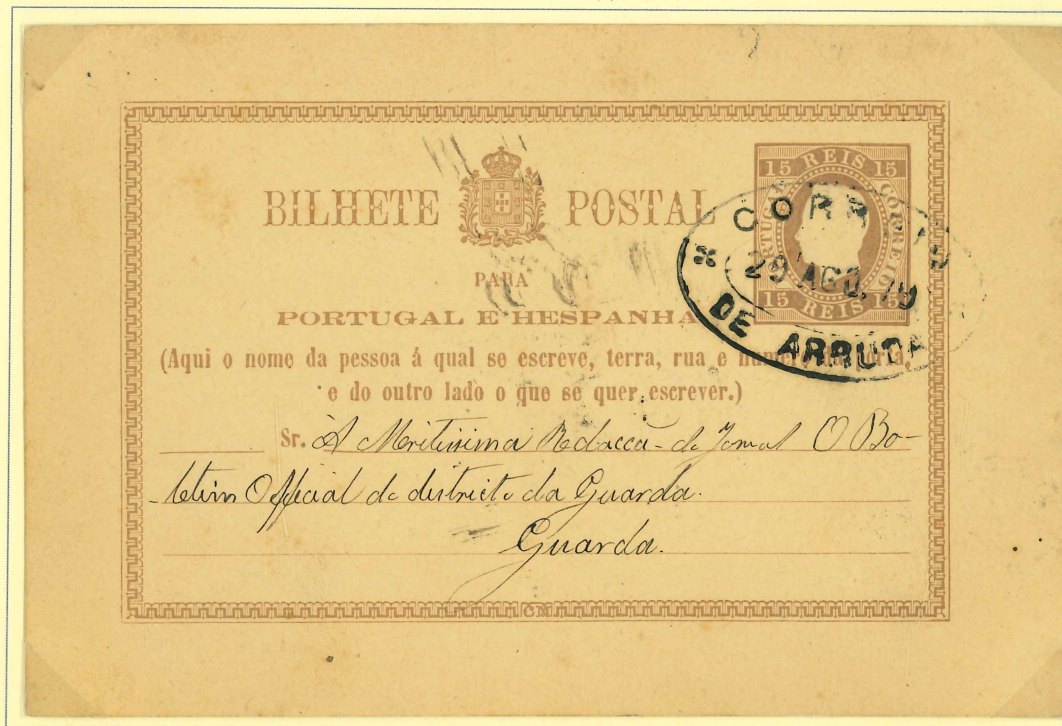 BILHETE POSTAL
15 REIS 15
PORTUGAL
CORREIO
15 REIS 15
CORREIO
29 AGO. 79
DE ARRUDA
PARA
PORTUGAL E HESPANHA
(Aqui o nome da pessoa á qual se escreve, terra, rua e numero da porta,
e do outro lado o que se quer escrever.)
Sr. Á Meritissima Redacca- do Jornal O Bo-
letim Official do districto da Guarda.
Guarda.